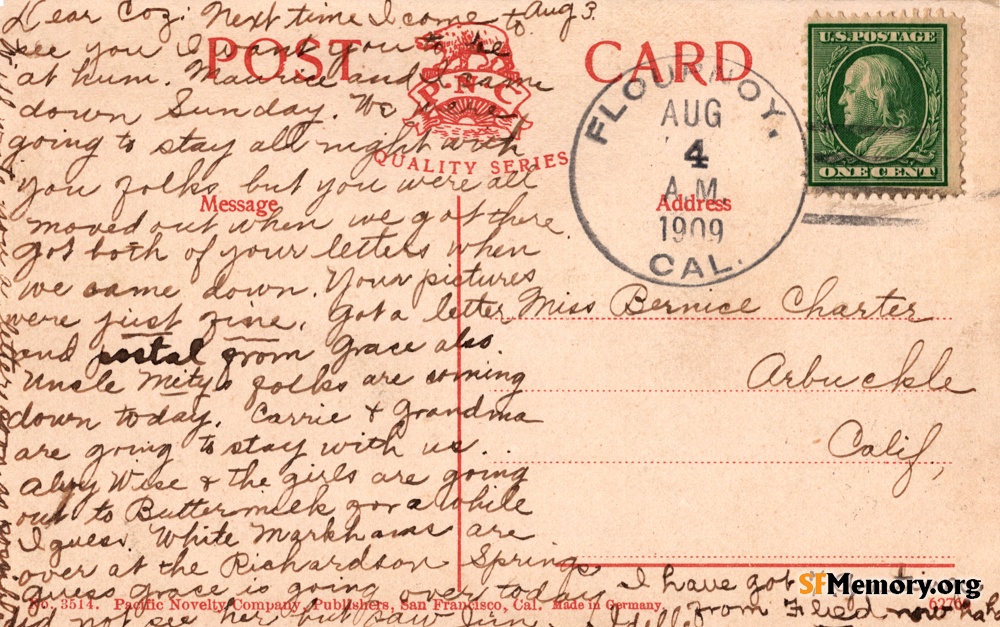 Aug 3.
Dear Coz: Next time I come to
see you I want you to be
at hum. Maurice and I came
down Sunday. We were
going to stay all night with
you folks but you were all
moved out when we got there.
Got both of your letters when
we came down. Your pictures
were just fine. Got a letter
and postal from Grace also.
Uncle Mity's folks are coming
down today. Carrie & Grandma
are going to stay with us.
Wise & the girls are going
out to Buttermilk for a while
I guess. White Markhams are
over at the Richardson Springs
guess Grace is going over today.
did not see her but saw
I have got
from Fred now haha
Idella
POST CARD
PNC
QUALITY SERIES
Message
Address
FLOURNOY,
AUG
4
A.M.
1909
CAL.
U.S. POSTAGE
ONE CENT
Miss Bernice Charter
Arbuckle
Calif,
No. 3514. Pacific Novelty Company, Publishers, San Francisco, Cal. Made in Germany.
SFMemory.org